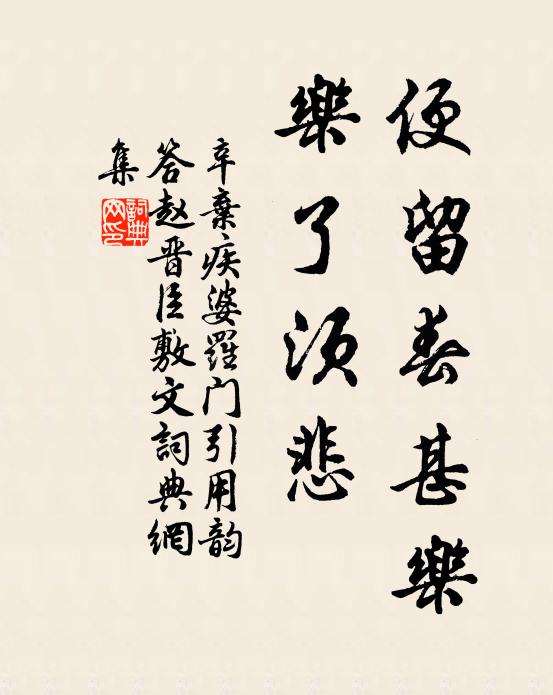 便留春甚樂
樂了須悲
辛棄疾婆羅门引用韵
答赵晋臣敷文詞典網
集
詞典
网印